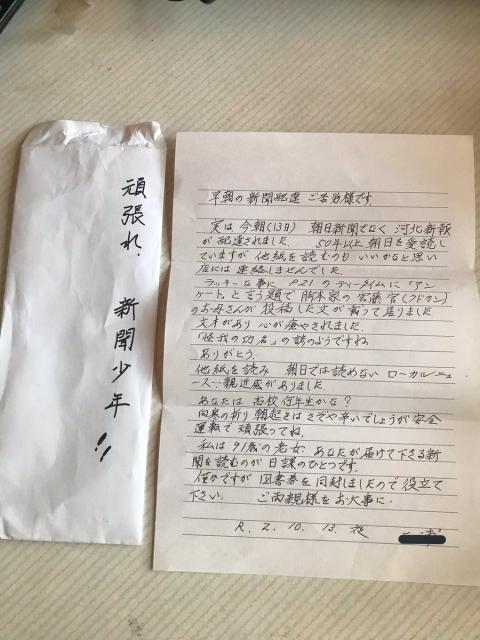 頑張れ、新聞少年!!
早朝の新聞配達 ご苦労様です
実は今朝(13日) 朝日新聞でなく 河北新報
が配達されました。 50年以上朝日を愛読し
ていますが他紙を読むのもいいかなと思い
店には連絡しませんでした。
ラッキーな事に P21のティータイムに「アン
ケート」と言う題で 脚本家の宮藤官(クドカン)
のお母さんが投稿した文が載って居りました
文才があり心が癒やされました。
「怪我の功名」の諺のようですね
ありがとう。
他紙を読み 朝日では読めない ローカルニュ
ース…親近感がありました
あなたは 高校何年生かな?
向寒の折り 朝起きはさぞや辛いでしょうが安全
運転で頑張ってね。
私は91歳の老女 あなたが届けて下さる新
聞を読むのが日課のひとつです。
僅かですが図書券を同封しましたので役立て
下さい。 ご両親様をお大事に。
R. 2. 10. 13. 夜